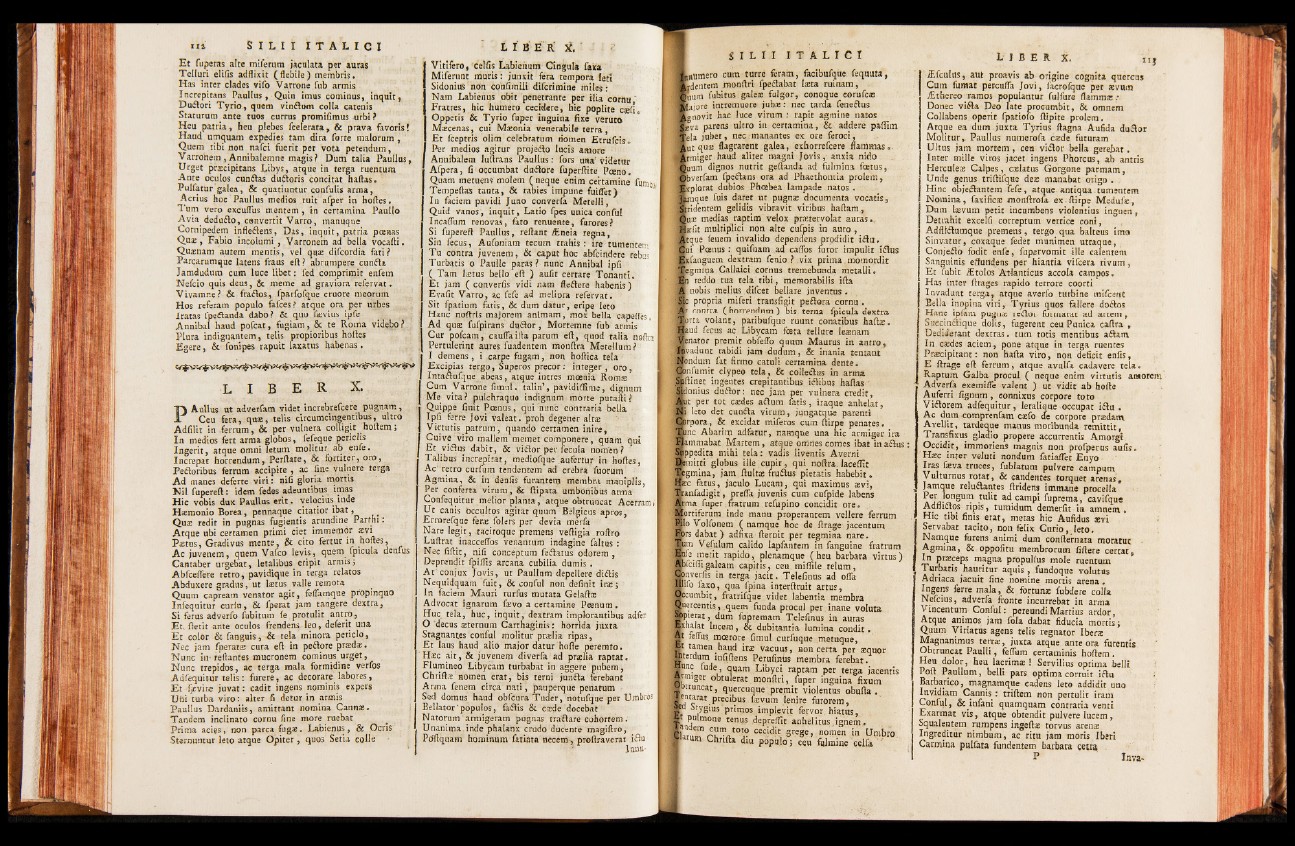 112 SILII ITALICI
Et superas alte miserum jaculata per auras
Telluri elisis adflixit (flebile) membris.
Has inter clades viso Varrone sub armis
Increpitans Paullus, Quin imus cominus, inquit,
Ductori Tyrio, quem vinctum colla catenis
Staturum ante tuos currus promisimus urbi?
Heu patria, heu plebes scelerata, & prava favoris!
Haud umquam expedies tam dira sorte malorum,
Quem tibi non nasci fuerit per vota petendum,
Varronem, Annibalemne magis? Dum talia Paullus,
Urget præcipitans Libys, atque in terga ruentum
Ante oculos cunctas ductoris concitat hastas.
Pulsatur galea, & quatiuntur consulis arma,
Acrius hoc Paullus medios ruit asper in hostes.
Tum vero excussus mentem, in certamina Paullo
Avia deducto, convertit Varro, manuque
Cornipedem inflectens, Das, inquit, patria pœnas
Quæ, Fabio incolumi, Varronem ad bella vocasti.
Quænam autem mentis, vel quæ discordia fati?
Parcarumque latens fraus est? abrumpere cuncta
Jamdudum cum luce libet: sed comprimit ensem
Nescio quis deus, & meme ad graviora refervat.
Vivamne? & fractos, sparsosque cruore meorum
Hos referam populo fasces? atque ora per urbes
Iratas spectanda dabo? & quo sævius ipse
Annibal haud poscat, fugiam, & te Roma videbo?
Plura indignantem, telis propioribus hostes
Egere, & sonipes rapuit laxatus habenas.
LIBER X.
PAullus ut adversam videt increbrescere pugnam,
Ceu fera, quæ, telis circumcingentibus, ultro
Adsilit in ferrum, & per vulnera colligit hostem;
In medios fert arma globos, seseque periclis
Ingerit, atque omni letum molitur ab ense.
Increpat horrendum, Perstare, & fortiter, oro,
Pectoribus ferrum accipite, ac sine vulnere terga
Ad manes deferte viri: nisi gloria mortis
Nil superest: idem sedes adeuntibus imas
Hic vobis dux Paullus erit. velocius inde
Hæmonio Borea, pennaque citatior ibat,
Quæ redit in pugnas fugientis arundine Parthi:
Atque ubi certamen primi ciet immemor ævi
Pætus, Gradivus mente, & cito fertur in hostes,
Ac juvenem, quem Vasco levis, quem spicula densus
Cantaber urgebat, letalibus eripit armis;
Abscessere retro, pavidique in terga relatos
Abduxere gradus, ut lætus valle remota
Quum capream venator agit, fessamque propinquo
Insequitur cursu, & sperat jam tangere dextra,
Si ferus adverso subitum se protulit antro,
Et stetit ante oculos frendens leo, deserit una
Et color & sanguis, & tela minora periclo,
Nec jam speratæ cura est in pectore prædæ.
Nunc in restantes mucronem cominus urget,
Nunc trepidos, ac terga mala formidine versos
Adsequitur telis: furere, ac decorare labores,
Et sævire juvat: cadit ingens nominis expers
Uni turba viro: alter si detur in armis
Paullus Dardaniis, amittant nomina Cannæ.
Tandem inclinato cornu sine more ruebat
Prima acies, non parca fugæ. Labienus, & Ocris
Sternuntur leto atque Opiter, quos Setia colle
LIBER X.
Vitifero, celsis Labienum Cingula saxa
Miserunt muris: junxit fera tempora leti
Sidonius non consimili discrimine miles:
Nam Labienus obit penetrante per ilia cornu,
Fratres, hic humero cecidere, hic poplite cæsi.
Oppetis & Tyrio super inguina fixe veruto
Mæcenas, cui Mæonia venerabile terra,
Et sceptris olim celebratum nomen Etruscis.
Per medios agitur projecto lucis amore
Annibalem lustrans Paullus: sors una videtur
Aspera, si occumbat ductore superstite Pœno.
Quam metuens molem (neque enim certamine sumo
Tempestas tanta, & rabies impune fuisset)
In faciem pavidi Juno conversa Metelli,
Quid vanos, inquit, Latio spes unica consul
Incassum renovas, fato renuente, furores?
Si superest Paullus, restant Æneia regna,
Sin secus, Ausoniam tecum trahis: ire tumentem
Tu contra juvenem, & caput hoc abscindere rebus
Turbatis o Paulle paras? nunc Annibal ipsi
(Tam lætus bello est) ausit certare Tonanti.
Et jam (conversis vidi nam flectere habenis)
Evasit Varro, ac sese ad meliora refervat.
Sit spatium fatis, & dum datur, eripe leto
Hanc nostris majorem animam, mox bella capesses.
Ad quæ suspirans ductor, Mortemne sub armis
Cur poscam, caussa ista parum est, quod talia nostræ
Pertulerint aures suadentem monstra Metellum?
I demens, i carpe fugam, non hostica tela
Excipias tergo, Superos precor: integer, oro,
Intactusque abeas, atque intres mœnia Romæ
Cum Varrone simul. talin', pavidissime, dignum
Me vita? pulchraque indignum morte putasti?
Quippe sinit Pœnus, qui nunc contraria bella
Ipsi ferre Jovi valeat. proh degener altæ
Virtutis patrum, quando certamen inire,
Cuive viro mallem memet componere, quam qui
Et victus dabit, & victor per secula nomen?
Talibus increpitat, mediosque aufertur in hostes,
Ac retro cursum tendentem ad crebra suorum
Agmina, & in densis furantem membra maniplis,
Per conferta virum, & stipata umbonibus arma
Consequitur melior planta, atque obtruncat Acernam.
Ut canis occultos agitat quum Belgicus apros,
Erroresque feræ solers per devia mersa
Nare legit, taciroque premens vestigia rostro
Lustrat inaccessos venantum indagine saltus:
Nec sistit, nisi conceptum sectatus odorem,
Deprendit spissis arcana cubilia dumis.
At conjux Jovis, ut Paullum depellere dictis
Nequidquam fuit, & consul non definit iræ;
In faciem Mauri rursus mutata Gelastæ
Advocat ignarum sævo a certamine Pœnum.
Huc tela, huc, inquit, dextram implorantibus adfer
O decus æternum Carthaginis: horrida juxta
Stagnantes consul molitur prælia ripas,
Et laus haud alio major datur hoste peremto.
Hæc ait, & juvenem diversa ad prælia raptat.
Flumineo Libycam turbabat in aggere pubem,
Christæ nomen erat, bis terni juncta ferebant
Arma senem circa nati, pauperque penatum
Sed domus haud obscura Tuder, notusque per Umbros
Bellator populos, factis & cæde docebat
Natorum armigeram pugnas tractare cohortem.
Unanima inde phalanx crudo ducente magistro,
Postquam hominum satiata necem, prostraverat ictu
Innu-
SILII ITALICI
Innumero cum turre feram, facibusque sequuta,
Ardentem monstri spectabat læta ruinam,
Quum subitus galeæ fulgor, conoque coruscæ
Majore intremuere jubæ: nec tarda senectus
Agnovit hac luce virum: rapit agmine natos
Sæva parens ultro in certamina, & addere passim
Tela jubet, nec manantes ex ore feroci,
Aut quæ flagrarent galea, exhorrescere flammas.
Armiger haud aliter magni Jovis, anxia nido
Quum dignos nutrit gestanda ad fulmina fœtus,
Obversam spectans ora ad Phaethontia prolem,
Explorat dubios Phœbea lampade natos.
Jamque suis daret ut pugnæ documenta vocatis,
Stridentem gelidis vibravit viribus hastam,
Quæ medias raptim velox prætervolat auras.
Hæsit multiplici non alte cuspis in auro,
Atque senem invalido dependens prodidit ictu.
Cui Pœnus: quisnam ad cassos furor impulit ictus
Exsanguem dextram senio? vix prima momordit
Tegmina Callaici cornus tremebunda metalli.
En reddo tua tela tibi, memorabilis ista
A nobis melius discet bellare juventus.
Sic propria miseri transfigit pectora cornu.
At contra (horrendum) bis terna spicula dextra
Torta volant, paribusque ruunt conatibus hastæ.
Haud secus ac Libycam fœta tellure leænam
Venator premit obsesso quum Maurus in antro,
Invadunt rabidi jam dudum, & inania tentant
Nondum sat firmo catuli certamina dente.
Consumit clypeo tela, & collectus in arma
Sustinet ingentes crepitantibus ictibus hastas
Sidonius ductor: nec jam per vulnera credit,
Aut per tot cædes actum satis, iraque anhelat,
Ni leto det cuncta virum, jungatque parenti
Corpora, & excidat miseros cum stirpe penates.
Tunc Abarim adfatur, namque una hic armiger ira
Flammabat Martem, atque omnes comes ibat in actus:
Suppedita mihi tela: vadis liventis Averni
Demitti globus ille cupit, qui nostra lacessit
Tegmina, jam stultæ fructus pietatis habebit.
Hæc fatus, jaculo Lucam, qui maximus ævi,
Transadigit, pressa juvenis cum cuspide labens
Arma super fratrum resupino concidit ore.
Mortiferum inde manu properantem vellere ferrum
Pilo Volsonem (namque hoc de strage jacentum
Fors dabat) adfixa steroit per tegmina nare.
Tum Vesulum calido lapsantem in sanguine fratrum
Ense metit rapido, plenamque (heu barbara virtus)
Abscissi galeam capitis, ceu missile telum,
Conversis in terga jacit. Telesinus ad ossa
Illiso saxo, qua spina interstruit artus,
Occumbit, fratrisque videt labentia membra
Quercentis, quem funda procul per inane voluta
Sopierat, dum supremam Telesinus in auras
Exhalat lucem, & dubitantia lumina condit.
At fessus mœrore simul cursuque metuque,
Et tamen haud iræ vacuus, non certa per æquor
Interdum insistens Perusinus membra ferebat.
Hunc sude, quam Libyci raptam per terga jacentis
Armiger obtulerat monstri, super inguina fixum
Obtruncat, quercuque premit violentus obusta.
Tentarat precibus sævum lenire furorem,
Sed Stygius primos implevit fervor hiatus,
Et pulmone tenus depressit anhelitus ignem.
Tandem cum toto cecidit grege, nomen in Umbro
Clarum Christa diu populo; ceu fulmine celsa
LIBER X. 113
Æsculus, aut proavis ab origine cognita quercus
Cum fumat percussa Jovi, sacrosque per ævum
Ætherco ramos populantur sulfure flammæ:
Donec victa Deo late procumbit, & omnem
Collabens operit spatioso stipite prolem.
Atque ea dum juxta Tyrius stagna Aufida ductor
Molitur, Paullus numerosa cæde futuram
Ultus jam mortem, ceu victor bella gerebat.
Inter mille viros jacet ingens Phorcus, ab antris
Herculeæ Calpes, cælatus Gorgone parmam,
Unde genus tristique deæ manabat origo.
Hinc objectantem sese, atque antiqua tumentem
Nomina, saxificæ monstrosa ex stirpe Medusæ,
Dum lævum petit incumbens violentius inguen,
Detrahit excelsi correptum vertice coni,
Adflictumque premens, tergo qua balteus imo
Sinvatur, coxaque sedet munimen utraque,
Conjecto fodit ense, supervomit ille calentem
Sanguinis effundens per hiantia viscera rivum,
Et subit Ætolos Atlanticus accola campos.
Has inter strages rapido terrore coorti
Invadunt terga, atque averso turbine miscent
Bella inopina viri, Tyrius quos fallere doctos
Hanc ipsam pugnæ rector formarat ad artem,
Succinctique dolis, fugerent ceu Punica castra,
Dediderant dextras. tum totis mentibus actam
In cædes aciem, pone atque in terga ruentes
Præcipitant: non hasta viro, non deficit ensis,
E strage est ferrum, atque avulsa cadavere tela.
Raptum Galba procul (neque enim virtutis amorem
Adversa exemisse valent) ut vidit ab hoste
Auferri signum, connixus corpore toto
Victorem adsequitur, letalique occupat ictu.
Ac dum comprensam cæso de corpore prædam
Avellit, tardeque manus moribunda remittit,
Transfixus gladio propere accurrentis Amorgi
Occidit, immoriens magnis non prosperus ausis.
Hæc inter veluti nondum satiasset Enyo
Iras sæva truces, sublatum pulvere campum
Vulturnus rotat, & candentes torquet arenas.
Jamque reluctantes stridens immane procella
Per longum tulit ad campi suprema, cavisque
Adflictos ripis, tumidum demersit in amnem.
Hic tibi finis erat, metas hic Aufidus ævi
Servabat tacito, non felix Curio, leto.
Namque furens animi dum consternata moratur
Agmina, & oppositu membrorum sistere certat,
In præceps magna propulsus mole ruentum
Turbatis hauritur aquis, fundoque volutus
Adriaca jacuit sine nomine mortis arena.
Ingens ferre mala, & fortunæ subdere colla
Nescius, adversa fronte incurrebat in arma
Vincentum Consul: pereundi Martius ardor,
Atque animos jam sola dabat fiducia mortis;
Quum Viriatus agens telis regnator Iberæ
Magnanimus terræ, juxta atque ante ora furentis
Obtruncat Paulli, fessum certaminis hostem.
Heu dolor, heu lacrimæ! Servilius optima belli
Post Paullum, belli pars optima corruit ictu
Barbarico, magnamque cadens leto addidit uno
Invidiam Cannis: tristem non pertulit iram
Consul, & insani quamquam contraria venti
Exarmat vis, atque obtendit pulvere lucem,
Squalentem rumpens ingestæ torvus arenæ
Ingreditur nimbum, ac ritu jam moris Iberi
Carmina pulsata fundentem barbara cetra
P Inva-